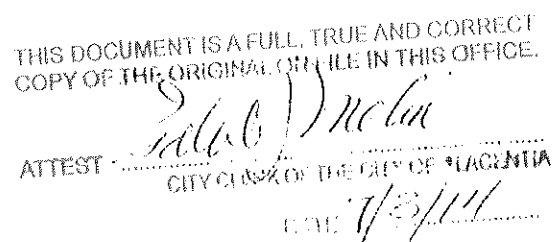 THIS DOCUMENT IS A FULL, TRUE AND CORRECT
COPY OF THE ORIGINAL ON FILE IN THIS OFFICE.
ATTEST
CITY CLERK OF THE CITY OF PLACENTIA
DATE